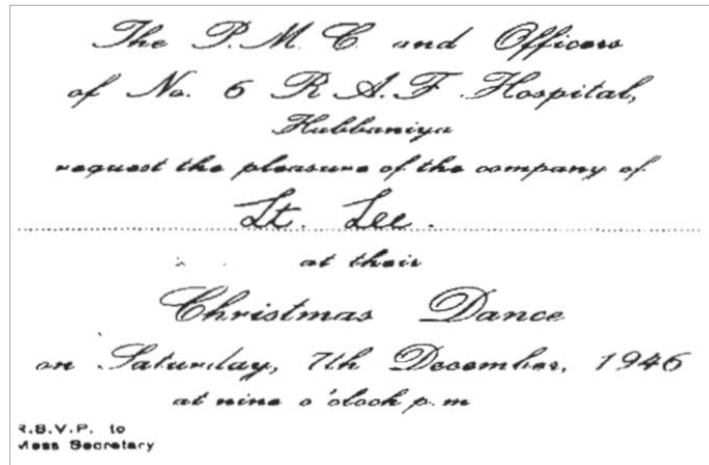 The P.M.C. and Officers
of No. 6 R.A.F. Hospital,
Habbaniya
request the pleasure of the company of
Lt. Lee.
at their
Christmas Dance
on Saturday, 7th December, 1946
at nine o'clock p.m
R.S.V.P. to
Mess Secretary